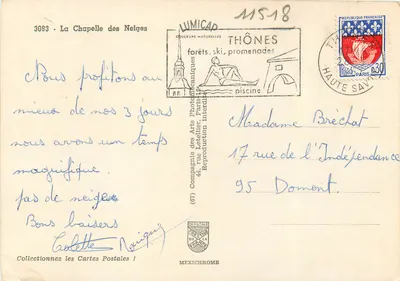 11518
3083 - La Chapelle des Neiges
LUMICAP
COULEURS NATURELLES
THÔNES
forêts, ski, promenades
piscine
REPUBLIQUE FRANÇAISE
0,30
PARIS
HAUTE SAV
Nous profitons au
mieux de nos 3 jours
nous avons un temps
magnifique.
pas de neige
Bons baisers
Colette
(67) Compagnie des Arts Photomécaniques
44, rue Letellier, Paris
Reproduction interdite
Madame Bréchat
17 rue de l'Indépendance
95 Domont.
Collectionnez les Cartes Postales !
MEXICHROME